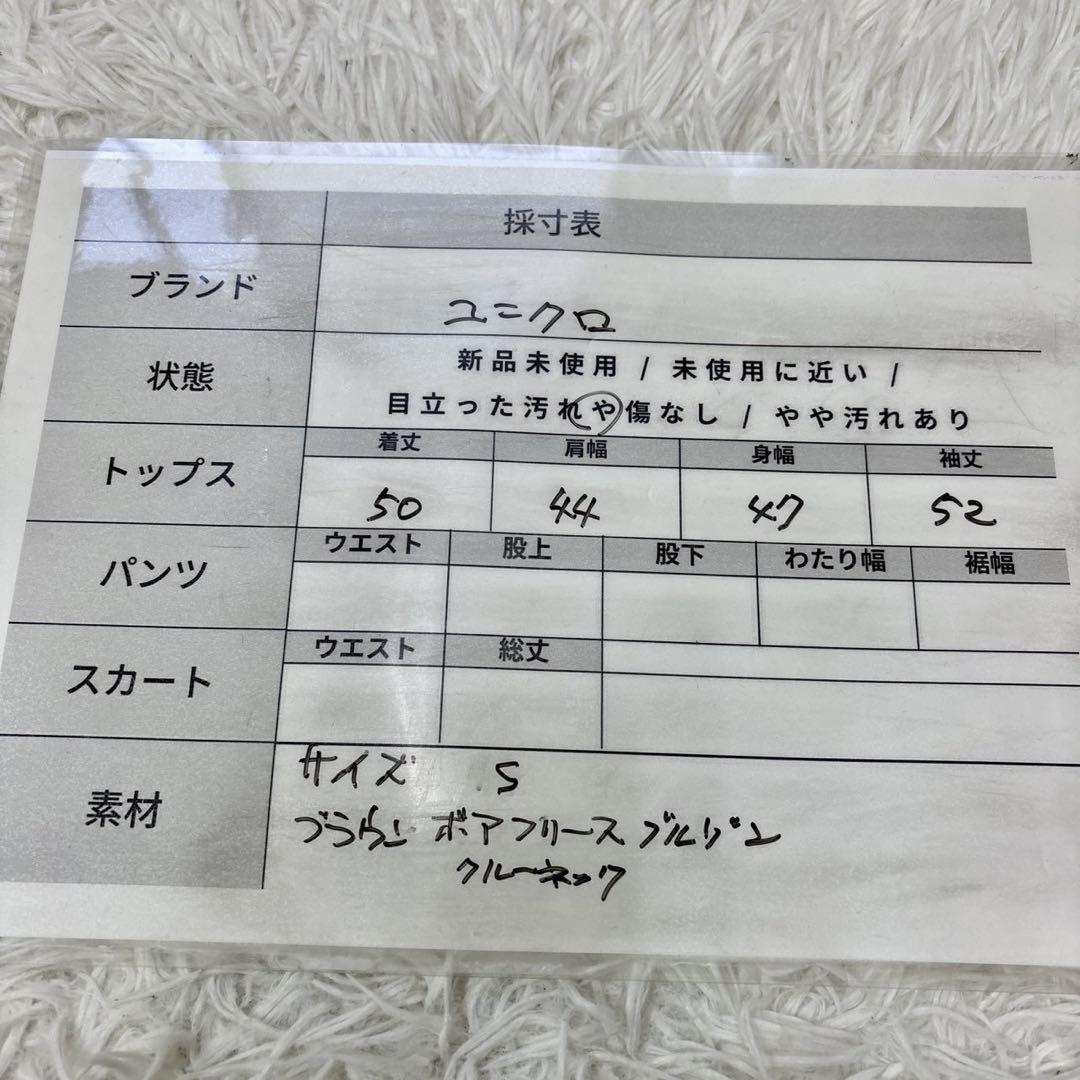 採寸表
ブランド
ユニクロ
状態
新品未使用 / 未使用に近い /
目立った汚れや傷なし / やや汚れあり
トップス
着丈 肩幅 身幅 袖丈
50 44 47 52
パンツ
ウエスト 股上 股下 わたり幅 裾幅
スカート
ウエスト 総丈
素材
サイズ S
ブラウン ボアフリース ブルゾン
クルーネック